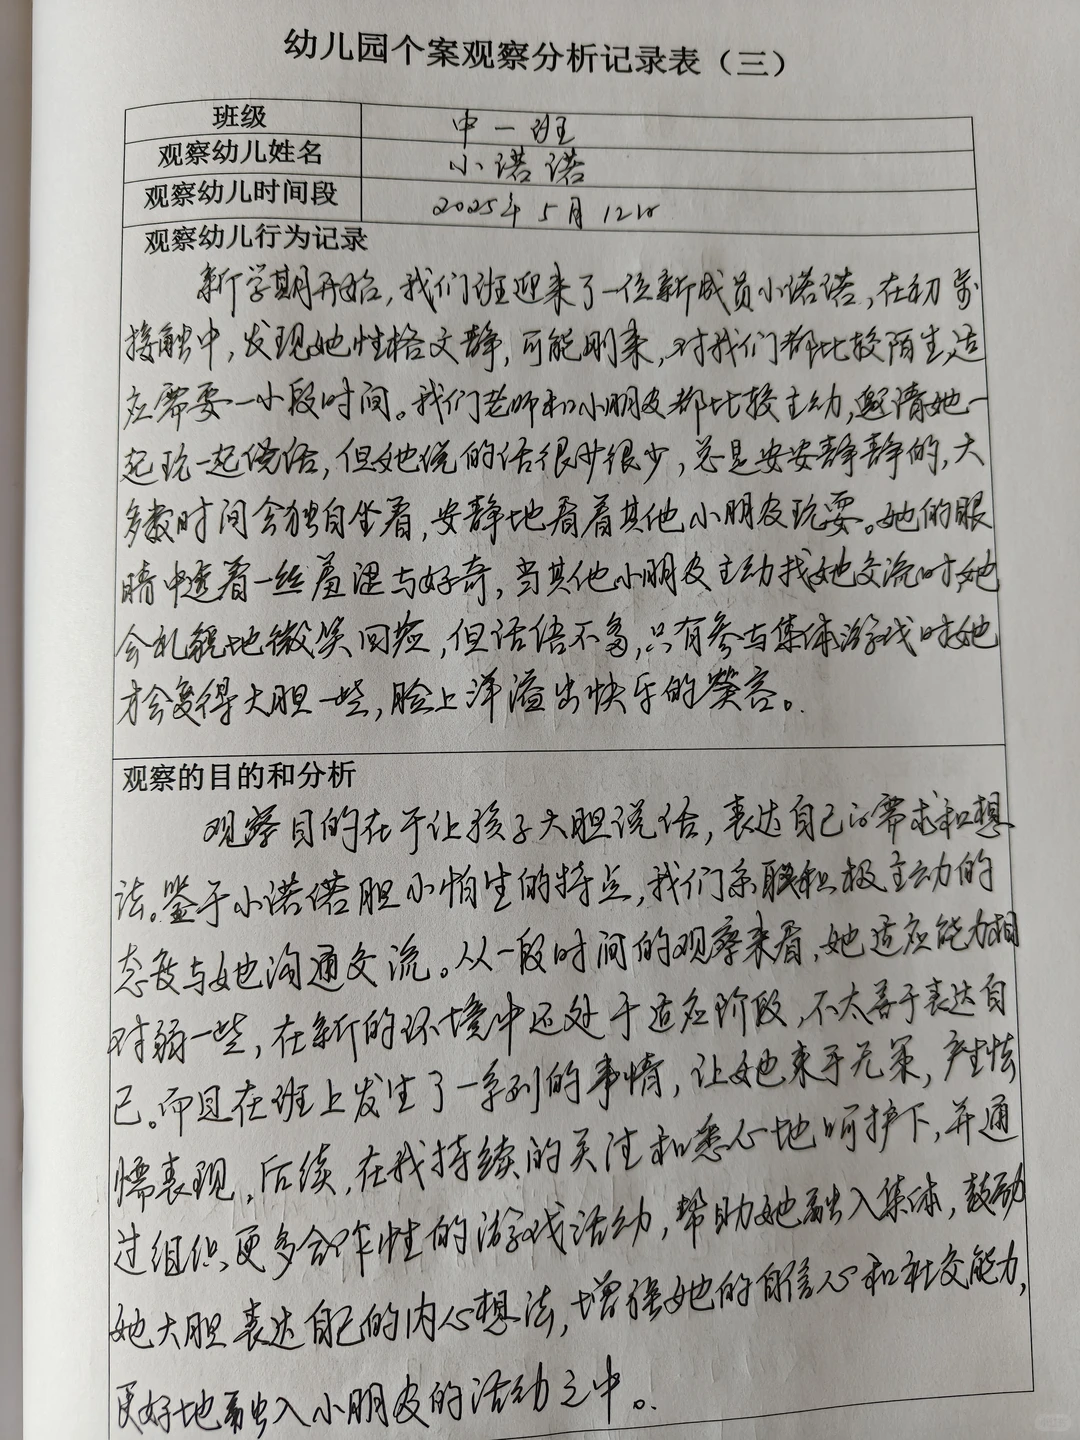 幼儿园个案观察分析记录表（三）
班级 中一班
观察幼儿姓名 小诺诺
观察幼儿时间段 2025年5月12日
观察幼儿行为记录
新学期开始，我们班迎来了一位新成员小诺诺，在初步
接触中，发现她性格文静，可能刚来，对我们都比较陌生，适
应需要一小段时间。我们老师和小朋友都比较主动，邀请她一
起玩一起说话，但她说的话很少很少，总是安安静静的，大
多数时间会独自坐着，安静地看着其他小朋友玩耍。她的眼
睛中透着一丝羞涩与好奇，当其他小朋友主动找她交流时，她
会礼貌地微笑回应，但话语不多，只有参与集体游戏时她
才会变得大胆一些，脸上洋溢出快乐的笑容。
观察的目的和分析
观察目的在于让孩子大胆说话，表达自己的需求和想
法。鉴于小诺诺胆小怕生的特点，我们采取积极主动的
态度与她沟通交流。从一段时间的观察来看，她适应能力相
对弱一些，在新的环境中还处于适应阶段，不太善于表达自
己。而且在班上发生了一系列的事情，让她束手无策，产生怯
懦表现。后续，在我持续的关注和悉心地呵护下，并通
过组织更多合作性的游戏活动，帮助她融入集体，鼓励
她大胆表达自己的内心想法，增强她的自信心和社交能力，
更好地融入小朋友的活动之中。